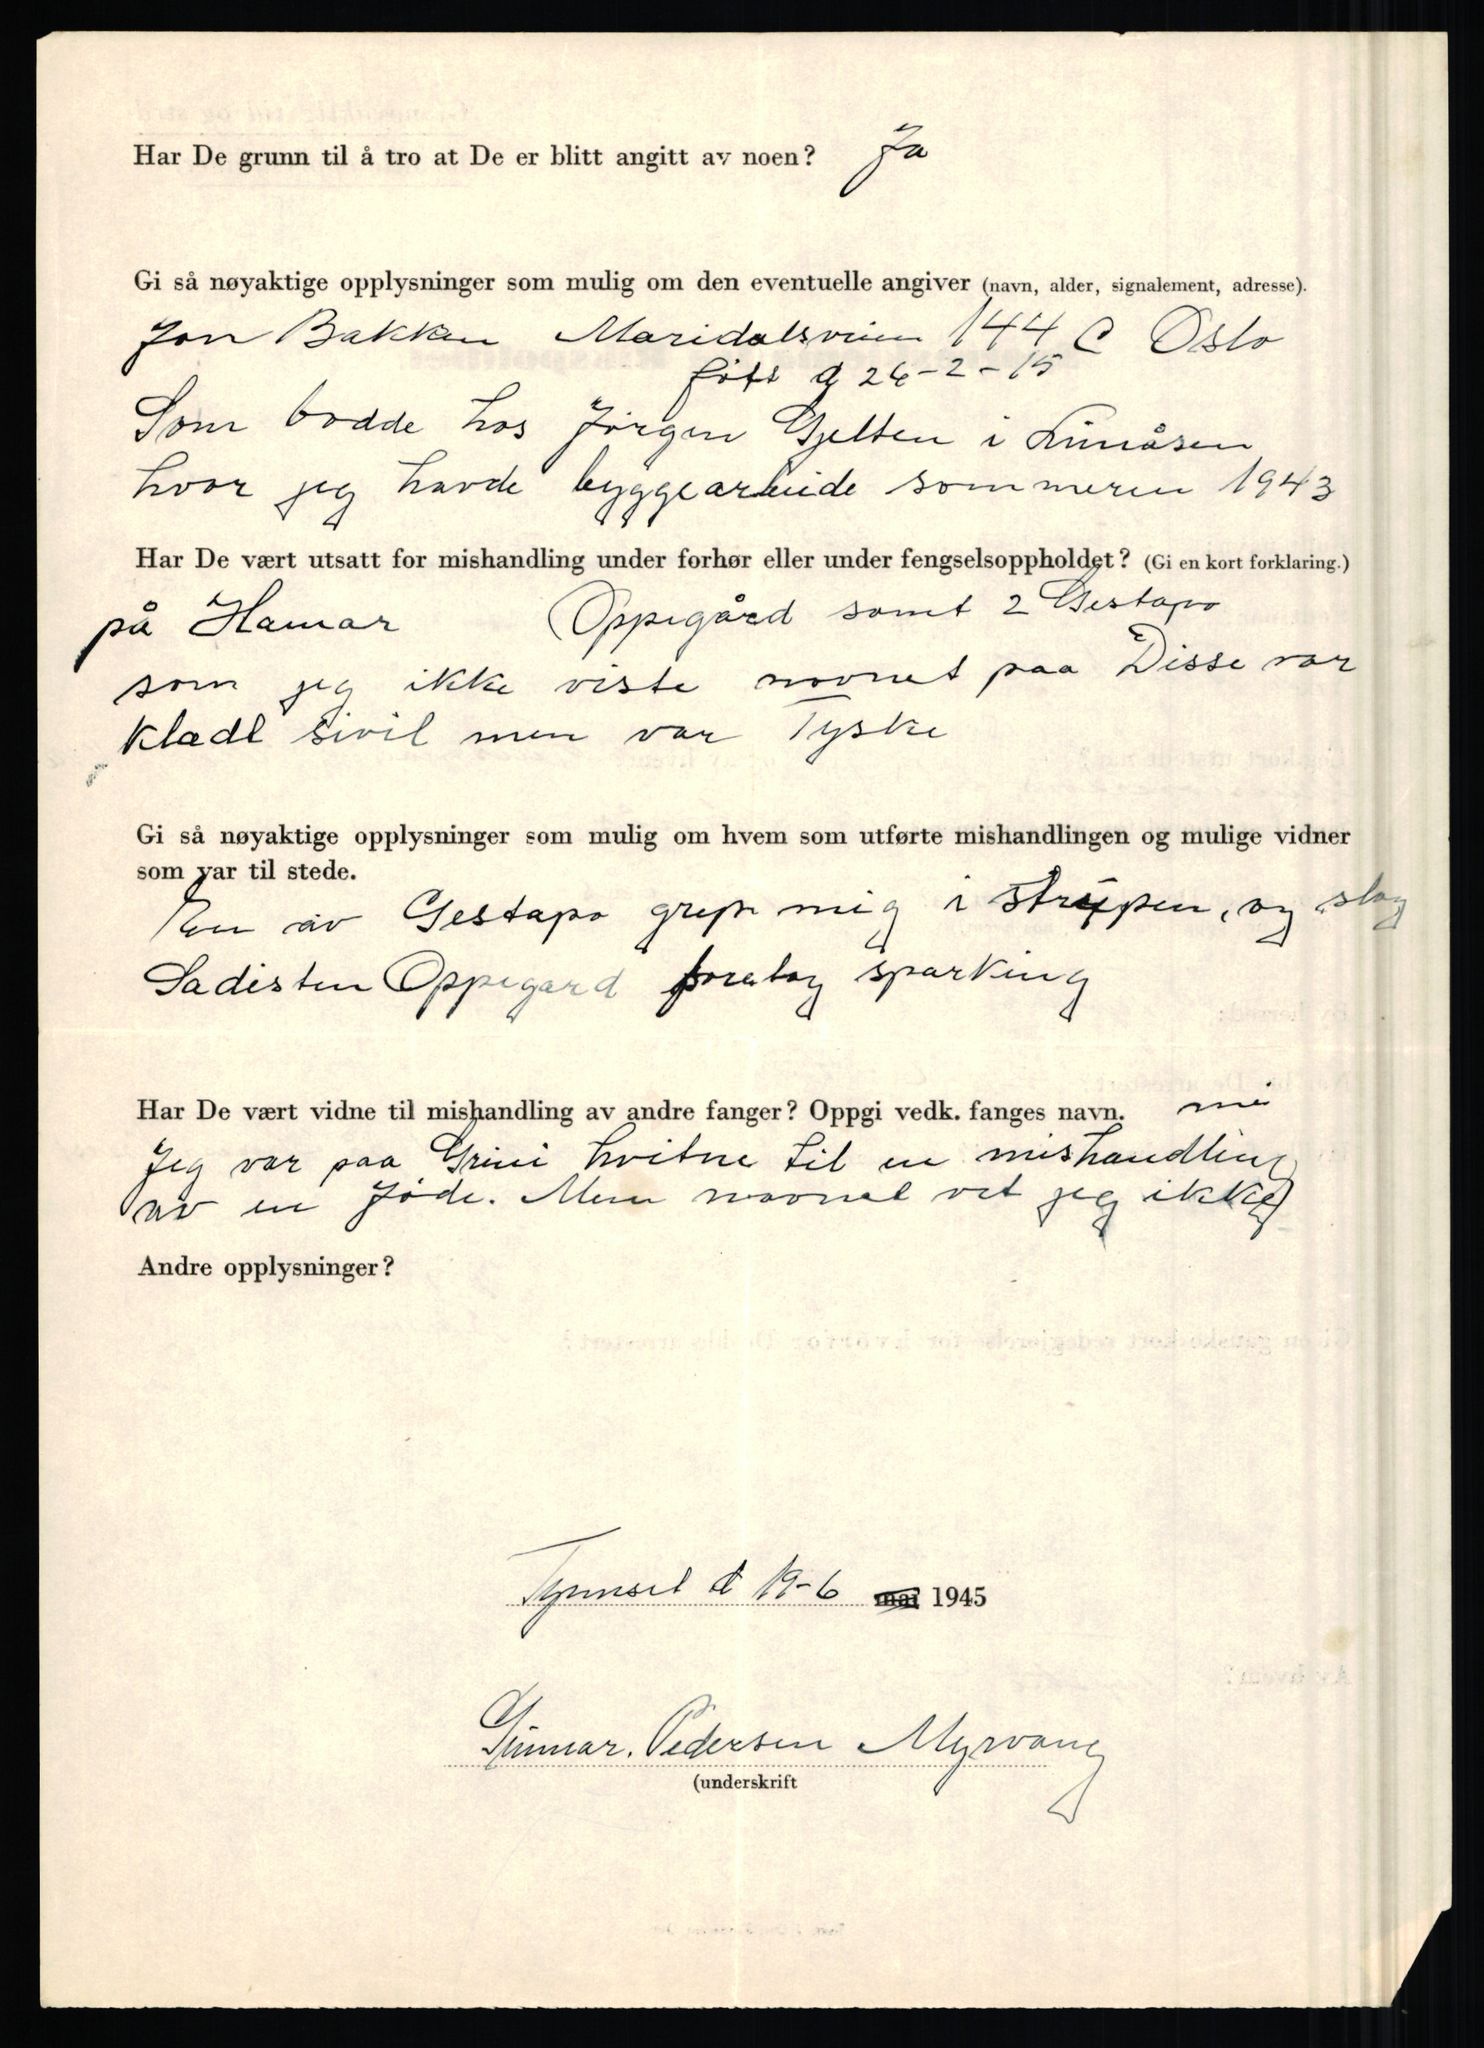 Har De grunn til å tro at De er blitt angitt av noen? Ja
Gi så nøyaktige opplysninger som mulig om den eventuelle angiver (navn, alder, signalement, adresse).
Jon Bakken Maridalsveien 144 C Oslo
født d 26-2-15
Som bodde hos Jørgen Gjelten i
hvor jeg havde byggearbeide sommeren 1943
Har De vært utsatt for mishandling under forhør eller under fengselsoppholdet? (Gi en kort forklaring.)
på Hamar Oppegård samt 2 Gestapo
som jeg ikke viste navnet paa Disse var
klædt sivil men var Tyske
Gi så nøyaktige opplysninger som mulig om hvem som utførte mishandlingen og mulige vidner
som var til stede.
En av Gestapo grep mig i strupen, og slog
Sadisten Oppegard foretog sparking
Har De vært vidne til mishandling av andre fanger? Oppgi vedk. fanges navn.
Jeg var paa Grini hvitne til en mishandling
av en Jøde. Men navnet vet jeg ikke
Andre opplysninger?
Tynset d 19-6 mai 1945
Gunnar. Pedersen Myrvang
(underskrift